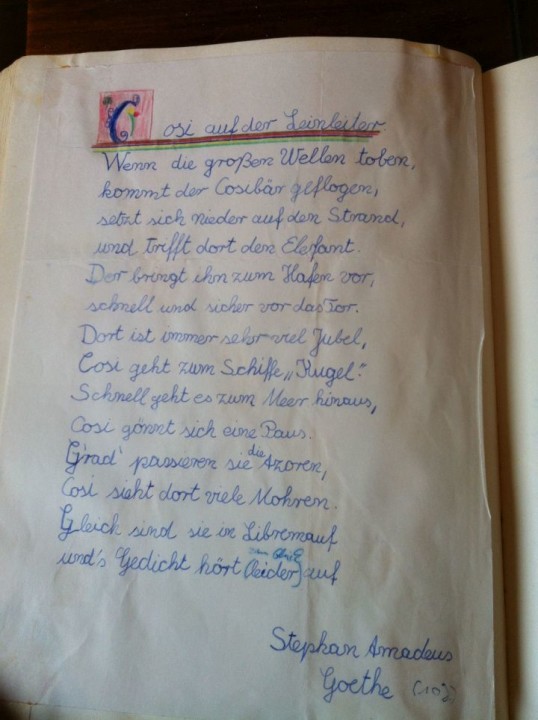 Cosi auf der Leinleiter
Wenn die großen Wellen toben,
kommt der Cosibär geflogen,
setzt sich nieder auf den Strand,
und trifft dort den Elefant.
Der bringt ihn zum Hafen vor,
schnell und sicher vor das Tor.
Dort ist immer sehr viel Jubel,
Cosi geht zum Schiffe „Kugel".
Schnell geht es zum Meer hinaus,
Cosi gönnt sich eine Paus.
G'rad' passieren sie die Azoren,
Cosi sieht dort viele Mohren.
Gleich sind sie in Libremauf
und's Gedicht hört (leider) auf
Stephan Amadeus
Goethe (10J)